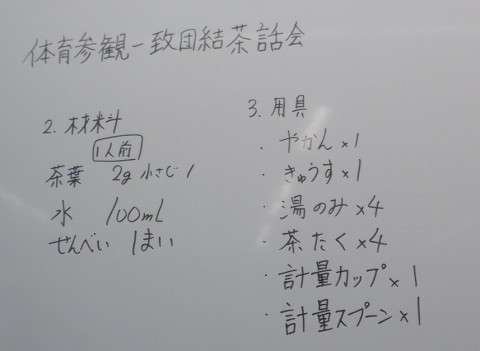 体育参観一致団結茶話会
2. 材料
1人前
茶葉 2g 小さじ1
水 100ml
せんべい 1まい
3. 用具
・やかん×1
・きゅうす×1
・湯のみ×4
・茶たく×4
・計量カップ×1
・計量スプーン×1